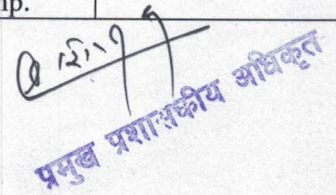 ip.
प्रमुख प्रशासकीय अधिकृत